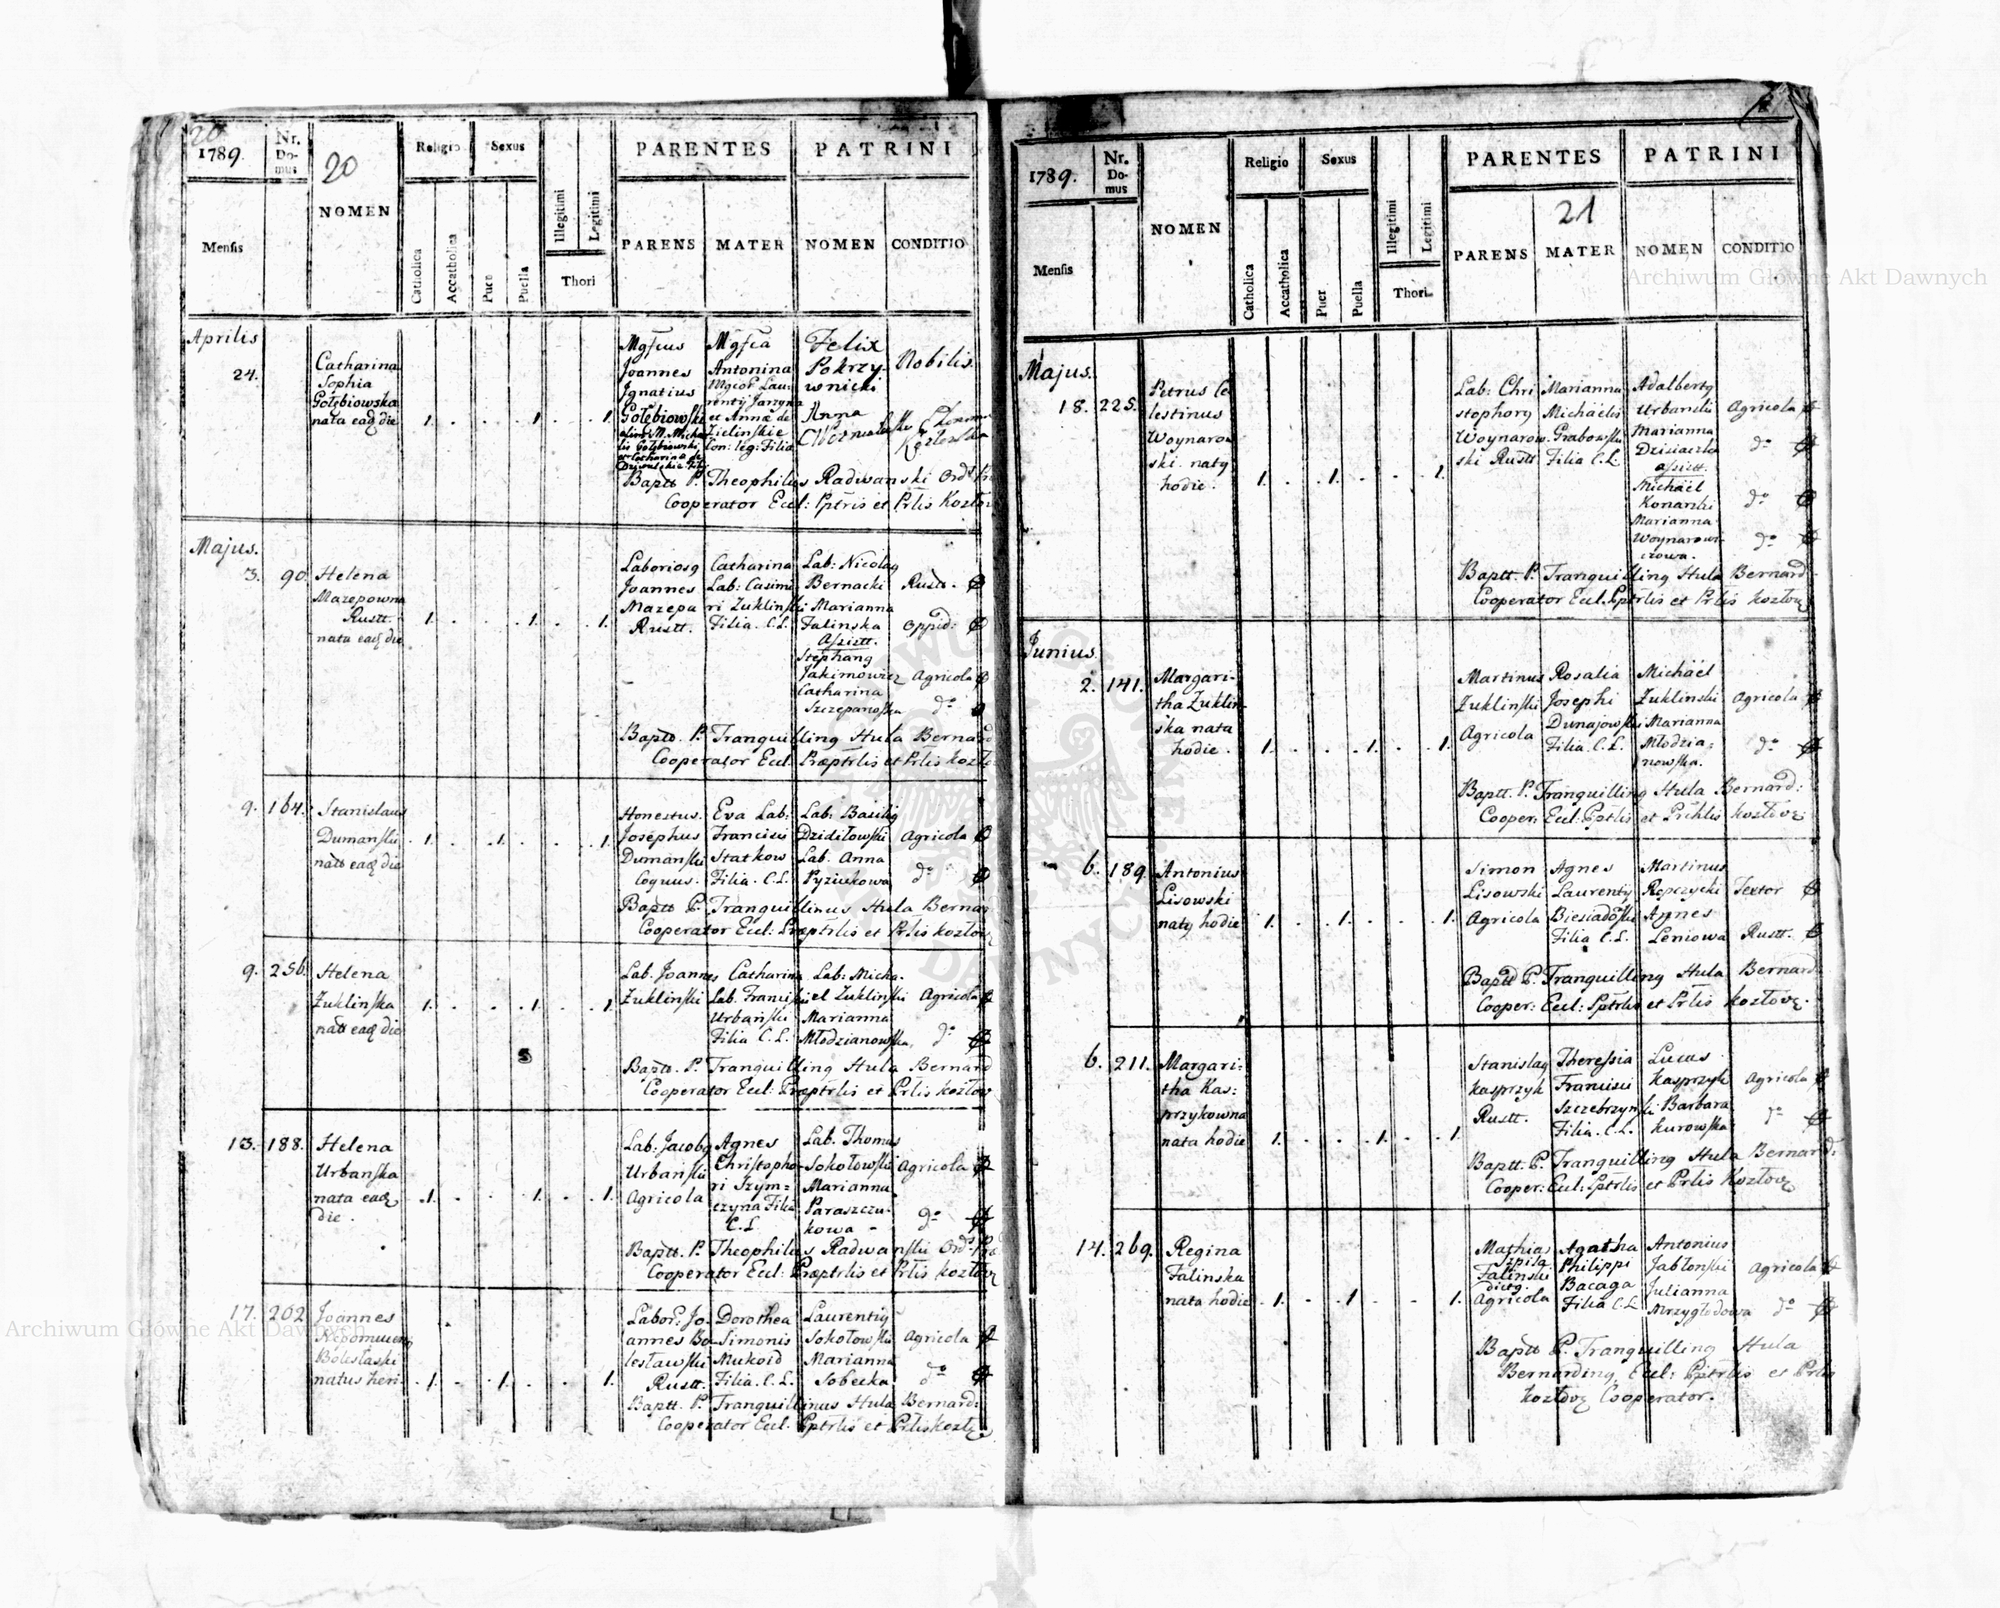 20
1789.
Nr. Do- mus
20
NOMEN
Religio
Sexus
Catholica
Accatholica
Puer
Puella
Illegitimi
Legitimi
Thori
PARENTES
PATRINI
PARENS
MATER
NOMEN
CONDITIO
Mensis
Aprilis
24.
Catharina
Sophia
Gołębiowska
nata eadē die
1. . . 1. . 1.
Joannes
Ignatius
Gołębiowski
Antonina
et Anna de
Zielinskie
Felix
Pokrzy-
wnicki
Anna
Nobilis.
Baptt P. Theophilus Radwanski Ord:
Cooperator Eccl: Pptris et Prlis Kozłov
Majus.
3. 90. Helena
Mazepowna
Rustt.
nata eadē die
1. . . 1. . 1.
Laboriosq
Joannes
Mazepa
Rustt.
Catharina
Lab: Casimi
ri Zuklinski
Filia. C.L.
Lab: Nicolaq
Bernacki Rustt.
Marianna
Falinska Oppid:
Assistt.
Stephanq
Jakimowicz Agricola
Catharina
Szczepanoska do
Baptt. P. Tranquilling Hula Bernard
Cooperator Eccl: Præptrlis et Prlis kozło
9. 164. Stanislaus
Dumanski
natt eadē die
1. . 1. . . 1.
Honestus.
Josephus
Dumanski
Eva Lab:
Francisci
Statkow
Filia. C.L.
Lab: Basiliq
Dzidiłowski Agricola
Lab. Anna
Pyziukowa do
Baptt P. Tranquillinus Hula Bernar
Cooperator Eccl: Præptrlis et Prlis kozłovę
9. 256. Helena
Zuklinska
natt eadē die
1. . . 1. . 1.
Lab. Joannes
Zuklinski
Catharina
Lab. Francisi
Urbański
Filia C.L.
Lab: Micha-
el Zuklinski Agricola
Marianna
Młodzianowska, do
Baptt. P. Tranquilling Hula Bernard
Cooperator Eccl: Præptrlis et Prlis kozłov
13. 188. Helena
Urbanska
nata eadē
die.
1. . . 1. . 1.
Lab: Jacobq
Urbanski
Agricola
Agnes
Christopho-
ri Szym-
czyna Filia
C.L
Lab. Thomas
Sokołowski Agricola
Marianna
Paraszczu-
kowa - do
Baptt. P. Theophilus Radwanski Ord:
Cooperator Eccl: Præptrlis et Prlis kozłovę
17. 202. Joannes
Nepomucenq
Bolesłaski
natus heri.
1. . 1. . . 1.
Labor: Jo-
annes Bo
lesławski
Rustt.
Dorothea
Simonis
Mukoid
Filia. C.L.
Laurentiq
Sokołowski Agricola
Marianna
Sobecka do
Baptt. P. Tranquillinus Hula Bernard:
Cooperator Eccl. Pptrlis et Prlis kozłę
1789.
Nr. Do- mus
NOMEN
Religio
Sexus
Catholica
Accatholica
Puer
Puella
Illegitimi
Legitimi
Thori
PARENTES
PATRINI
21
PARENS
MATER
NOMEN
CONDITIO
Mensis
Majus.
18. 225. Petrus Ce
lestinus
Woynarow
ski. natq
hodie.
1. . 1. . . 1.
Lab: Chri
stophorq
Woynarow-
ski Rustt
Marianna
Michäelis
Grabowski
Filia C.L.
Adalbertq
Urbanski Agricola
Marianna
Dzisiaczka do
assistt.
Michäel
Konarski do
Marianna
Woynarowi- do
czowa.
Baptt P. Tranquilling Hula Bernard
Cooperator Eccl. Pptrlis et Prlis kozłovę
Junius.
2. 141. Margari-
tha Zuklin-
ska nata
hodie.
1. . . 1. . 1.
Martinus
Zuklinski
Agricola
Rosalia
Josephi
Dunajowski
Filia. C.L.
Michäel
Zuklinski Agricola
Marianna
Młodzia- do
nowska.
Baptt. P. Tranquilling Hula Bernard:
Cooper: Eccl: Pptrlis et Prchlis kozłovę
6. 189. Antonius
Lisowski
natq hodie
1. . 1. . . 1.
Simon
Lisowski
Agricola
Agnes
Laurentq
Biesiadoski
Filia C.L.
Martinus
Ropczycki Textor
Agnes
Leniowa Rustt.
Baptt P. Tranquilling Hula Bernard
Cooper: Eccl: Pptrlis et Prlis kozłovę.
6. 211. Margari-
tha Kas:
przykowna
nata hodie
1. . . 1. . 1.
Stanislaq
Kasprzyk
Rustt.
Theressia
Francisci
Szczebrzyn
Filia. C.L.
Lucas
Kasprzyk Agricola
Barbara
Kurowska do
Baptt. P. Tranquilling Hula Bernard:
Cooper: Eccl: Pptrlis et Prlis Kozłovę
14. 269. Regina
Falinska
nata hodie
1. . 1 . . 1.
Mathias
Falinski
dictq.
Agricola
Agatha
Philippi
Bacaga
Filia C.L
Antonius
Jabłonski Agricola
Julianna
Mrzygłodowa do
Baptt P. Tranquilling Hula
Bernarding Eccl: Pptrlis et Prlis
kozłovę Cooperator.
Archiwum Główne Akt Dawnych
Archiwum Główne Akt Dawnych